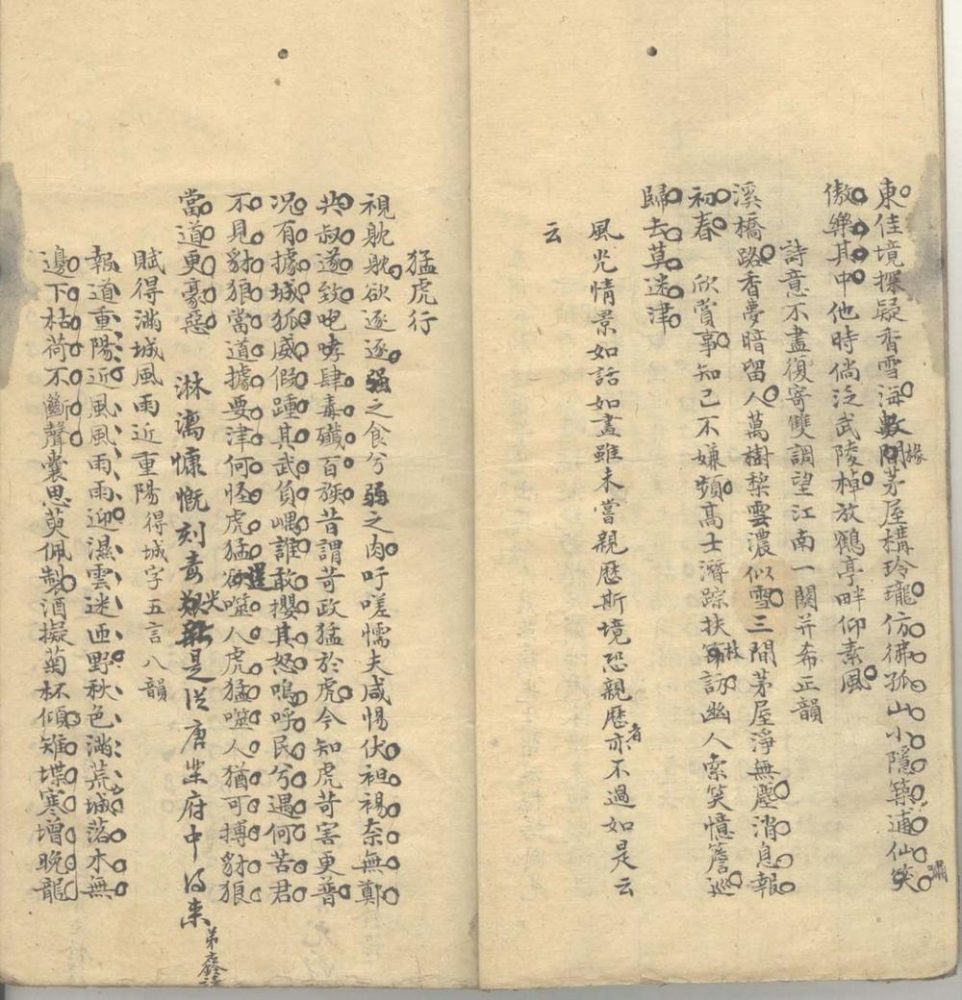 東佳境探疑香雪海數間茅屋構玲瓏仿彿孤山小隱築逋仙笑
椽
嘯
傲樂其中他時倘泛武陵棹放鶴亭畔仰素風
詩意不盡復寄雙調望江南一闋并希正韻
溪橋路香夢暗留人萬樹梨雲濃似雪三間茅屋淨無塵消息報
初春 欣賞事知己不嫌頻高士潛踪扶筇訪幽人索笑憶簷巡
杖
歸去莫迷津
風光情景如話如畫雖未嘗親歷斯境恐親歷亦不過如是云
者
云
猛虎行
視眈眈欲逐逐強之食兮弱之肉吁嗟懦夫咸惕伏袒裼奈無鄭
共叔遂致咆哮肆毒殲百族昔謂苛政猛於虎今知虎苛害更普
況有據城狐威假踵其武負嵎誰敢攖其怒嗚呼民兮遇何苦君
不見豺狼當道據要津何怪虎猛欲噬人虎猛噬人猶可搏豺狼
逞
當道更豪惡 淋漓慷慨刻毒是從唐樂府中得來
尖
弟鑫
賦得滿城風雨近重陽得城字五言八韻
報道重陽近風風雨雨迎濕雲迷四野秋色滿荒城落木無
邊下枯荷不斷聲囊思萸佩製酒擬菊杯傾雉堞寒增晚龍